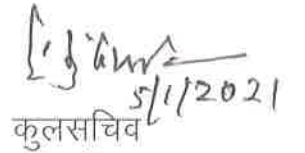 5/1/2021
कुलसचिव